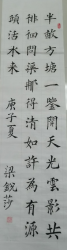 半畝方塘一鑒開天光雲影共
徘徊問渠那得清如許為有源
頭活水來 庚子夏 梁銳莎